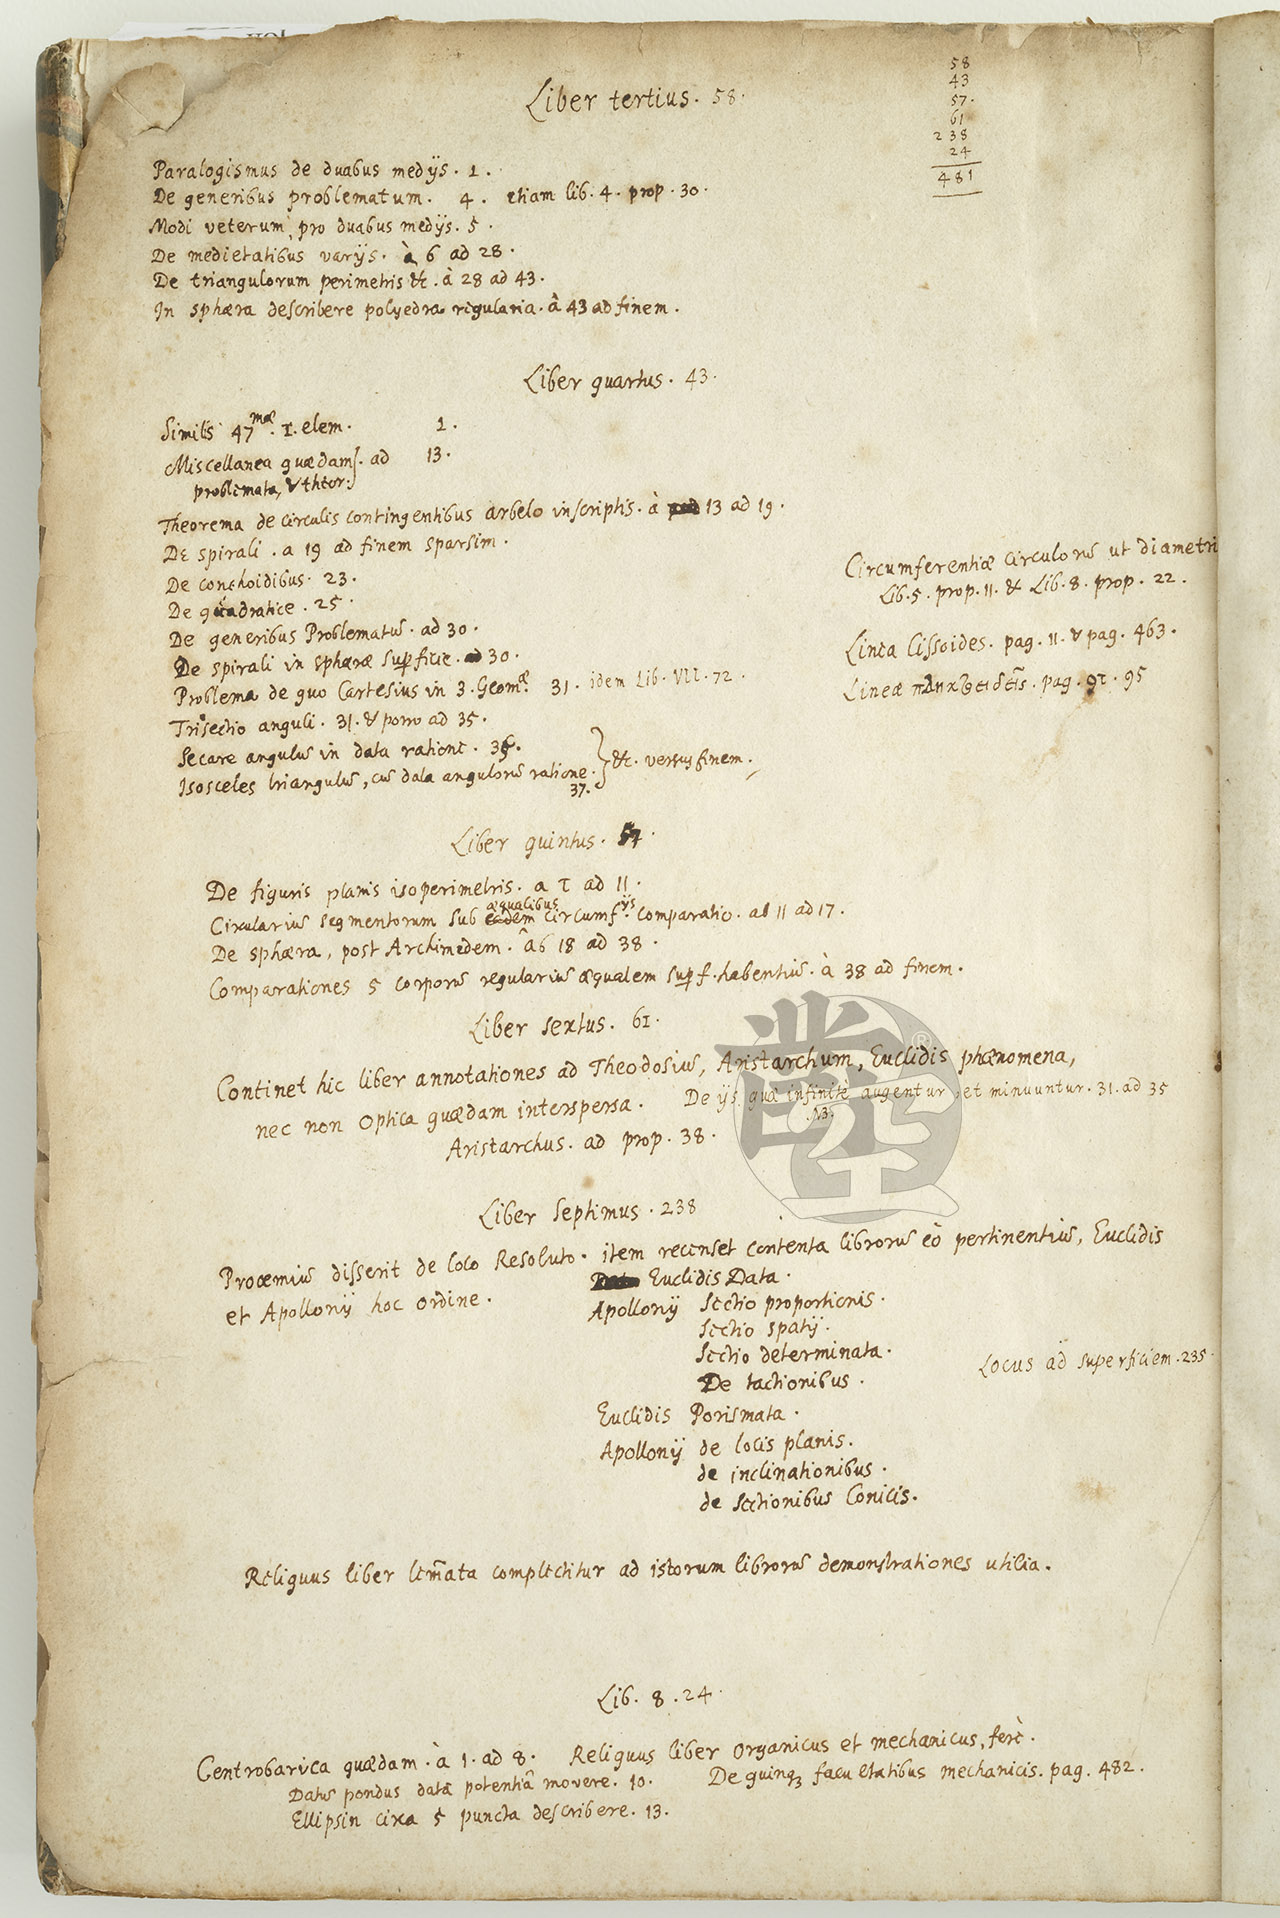 Liber tertius. 58.
58
43
57.
61
238
24
481
Paralogismus de duabus medijs. 1.
De generibus problematum. 4. etiam lib. 4. prop. 30.
Modi veterum, pro duabus medijs. 5.
De medietatibus varijs. à 6 ad 28.
De triangulorum perimetris &c. à 28 ad 43.
In sphæra describere polyedra regularia. à 43 ad finem.
Liber quartus. 43.
Similis 47mæ. 1. elem. 1.
Miscellanea quædam. ad 13.
problemata, & theor:
Theorema de circulis contingentibus arbelo inscriptis. à 13 ad 19.
De spirali. a 19 ad finem sparsim.
De conchoidibus. 23.
De quadratice. 25.
De generibus Problematū. ad 30.
De spirali in sphæræ superficie. ad 30.
Problema de quo Cartesius in 3. Geomæ. 31. idem Lib. VII. 72.
Trisectio anguli. 31. & porro ad 35.
Secare angulū in data ratione. 35.
Isosceles triangulū, cū data angulorū ratione. 37. &c. versus finem.
Circumferentiæ circulorū ut diametri
Lib. 5. prop. 11. & Lib. 8. prop. 22.
Linea cissoides. pag. 11. & pag. 463.
Lineæ pag. 91. 95
Liber quintus. 57.
De figuris planis isoperimetris. a 1 ad 11.
Circularium segmentorum sub æqualibus circumfijs. comparatio. ab 11 ad 17.
De sphæra, post Archimedem. ab 18 ad 38.
Comparationes 5 corporū regulariū æqualem superf. habentiū. à 38 ad finem.
Liber sextus. 61.
Continet hic liber annotationes ad Theodosiū, Aristarchum, Euclidis phænomena,
nec non Optica quædam interspersa. De ijs quæ infinitè augentur, et minuuntur. 31. ad 35
NB.
Aristarchus. ad prop. 38.
Liber septimus. 238
Proœmiū disserit de loco Resoluto. item recenset contenta librorū eò pertinentiū, Euclidis
et Apollonij hoc ordine.
Euclidis Data.
Apollonij Sectio proportionis.
Sectio spatij.
Sectio determinata.
De tactionibus.
Locus ad superficiem. 235.
Euclidis Porismata.
Apollonij de locis planis.
de inclinationibus.
de sectionibus Conicis.
Reliquus liber lem̄ata complectitur ad istorum librorū demonstrationes utilia.
Lib. 8. 24.
Centrobarica quædam. à 1. ad 8. Reliquus liber organicus et mechanicus, ferè.
Datū pondus datâ potentiâ movere. 10. De quinqꝫ facultatibus mechanicis. pag. 482.
Ellipsin circa 5 puncta describere. 13.